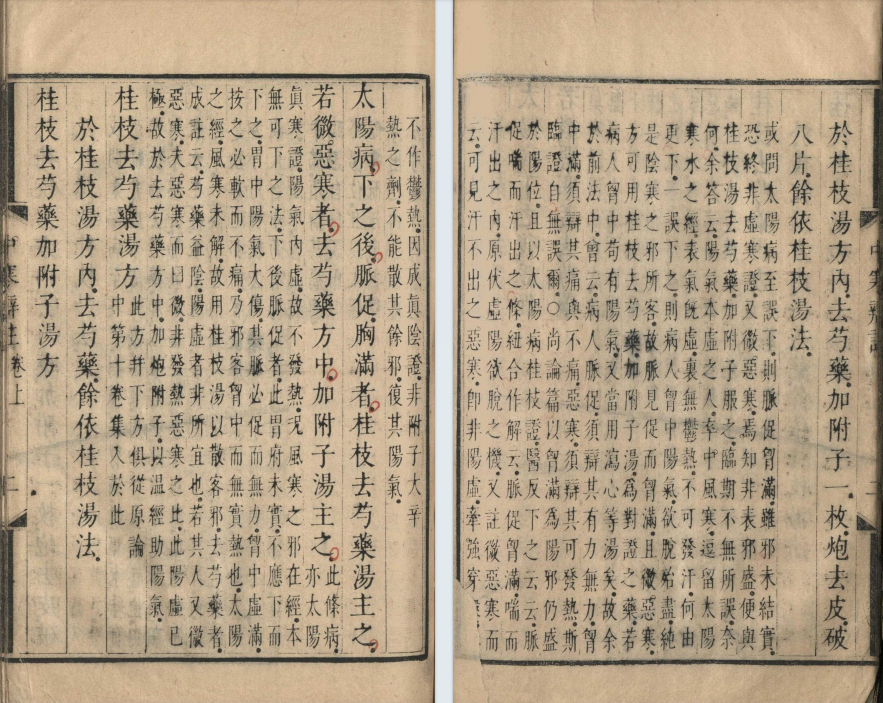 不作鬱熱因成真陰證非附子大辛
熱之劑不能散其餘邪復其陽氣
太陽病下之後脈促胸滿者桂枝去芍藥湯主之
若微惡寒者去芍藥方中加附子湯主之此條病亦太陽
真寒證陽氣內虛故不發熱况風寒之邪在經本
無可下之法下後脈促者此胃府未實不應下而
下之胃中陽氣大傷其脈必促而無力胷中虛滿
按之必軟而不痛乃邪客胷中而無實熱也太陽
之經風寒未解故用桂枝湯以散客邪去芍藥者
成註云芍藥益陰陽虛者非所宜也若其人又微
惡寒大惡寒而曰微非發熱惡寒之比此陽虛已
極故於去芍藥方中加炮附子以溫經助陽氣
桂枝去芍藥湯方此方幷下方俱從原論中第十卷集入於此
於桂枝湯方內去芍藥餘依桂枝湯法
桂枝去芍藥加附子湯方
卷上
二
於桂枝湯方內去芍藥加附子一枚炮去皮破
八片餘依桂枝湯法
或問太陽病至誤下則脈促胷滿雖邪未結實
恐終非虛寒證又微惡寒焉知非表邪盛便與
桂枝湯去芍藥加附子服之臨期不無所誤奈
何余答云陽氣本虛之人卒中風寒逗留太陽
寒水之經表氣旣虛裏無鬱熱不可發汗何由
更下一誤下之則病人胷中陽氣欲脫始盡純
是陰寒之邪所客故脈見促而胷滿且微惡寒
方可用桂枝去芍藥加附子湯爲對證之藥若
病人胷中苟有陽氣又當用瀉心等湯矣故余
於前法中曾云病人脈促須辯其有力無力胷
中滿須辯其痛與不痛惡寒須辯其可發熱斯
臨證自無誤爾○尚論篇以胷滿爲陽邪仍盛
於陽位且以太陽病桂枝證醫反下之云云脈
促喘而汗出之條紐合作解云脈促胷滿喘而
汗出之內原伏虛陽欲脫之機又註微惡寒而
云可見汗不出之惡寒卽非陽虛牽強穿